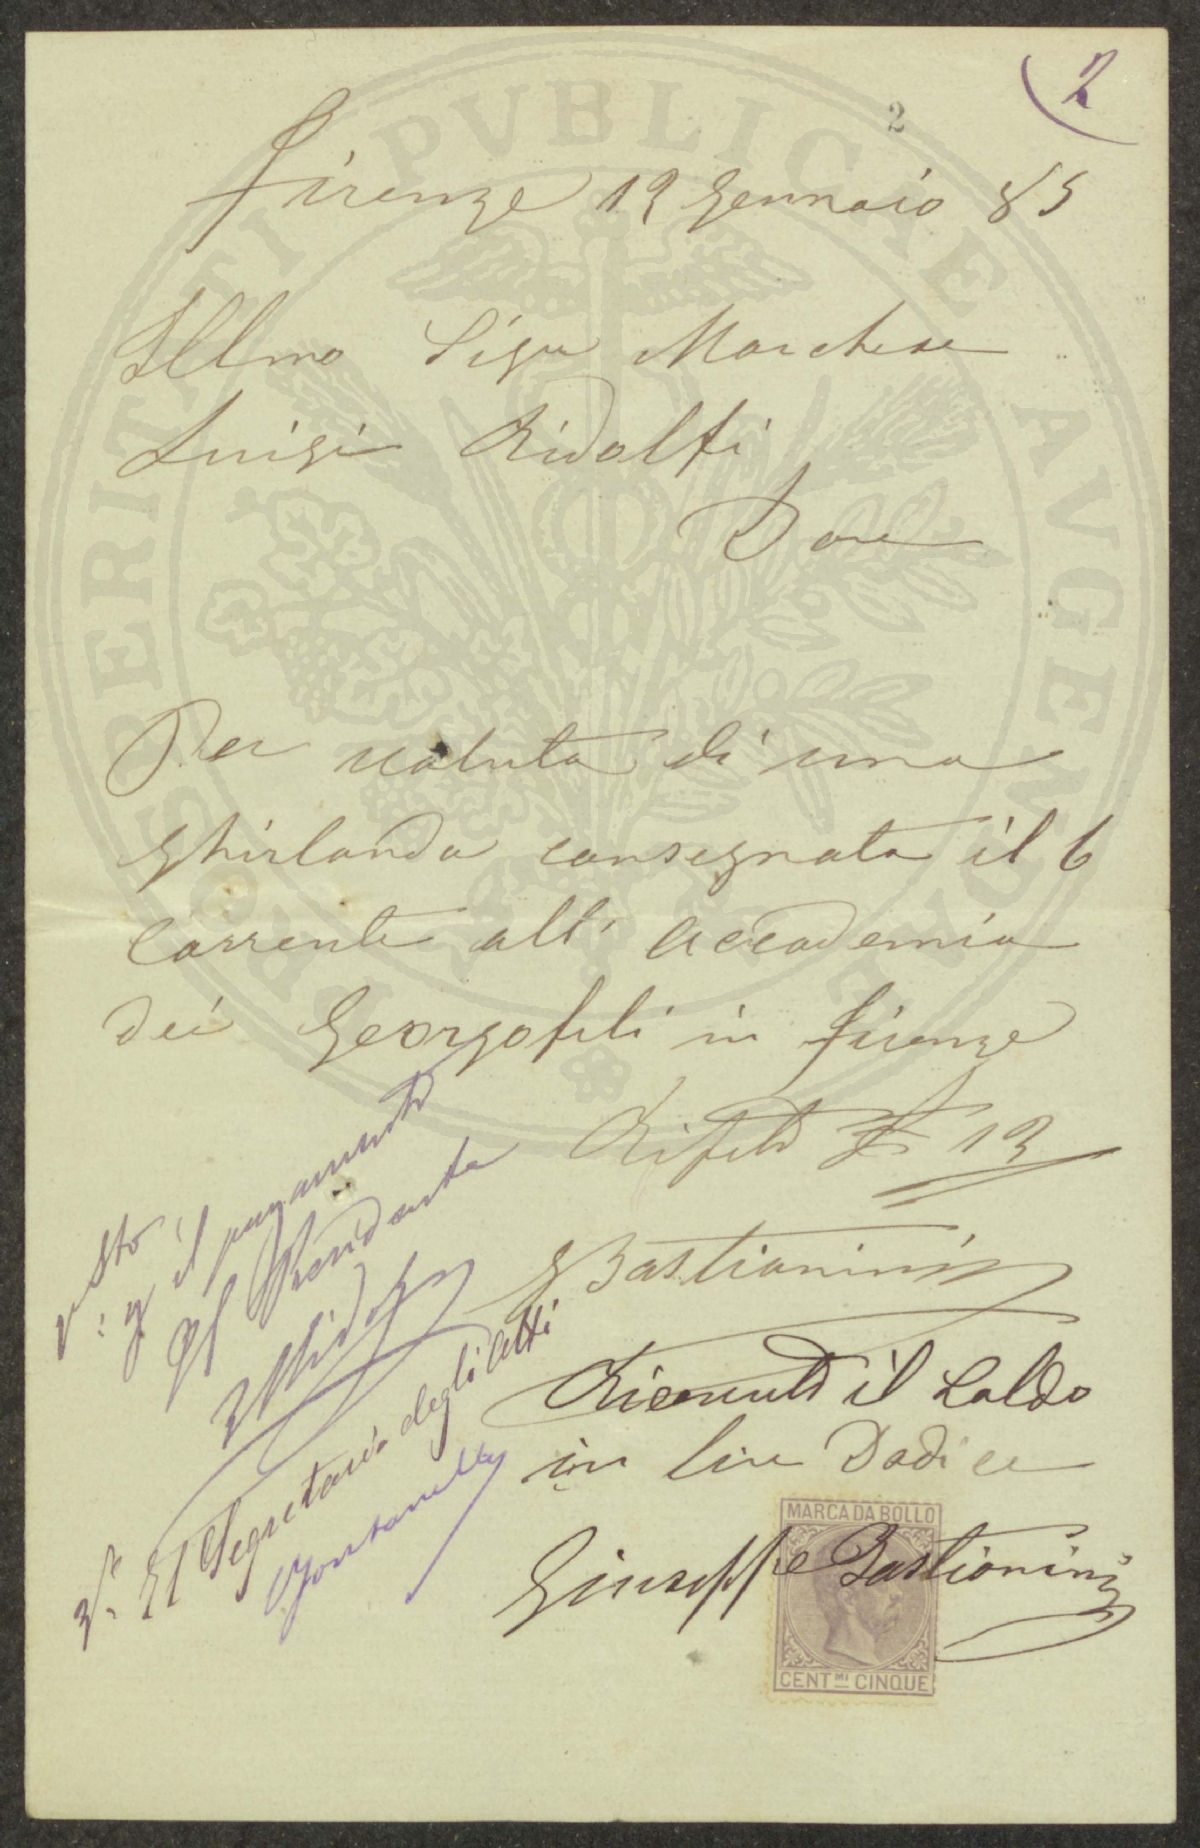 2
2
Firenze 19 Gennaio 85
Illmo Sigr Marchese
Luigi Ridolfi
Dare
Per valuta di una
Ghirlanda consegnata il 6
Corrente all' Accademia
dei Georgofili in Firenze
12
GBastianini
Ricevuto il Saldo
in lire Dodici
Giuseppe Bastianini
MARCA DA BOLLO
CENT.MI CINQUE
visto
: p il pagamento
Il Presidente
LRidolfi
Vo. Il Segretario degli Atti
Fontanelli
PROSPERITATI PVBLICAE AVGENDAE